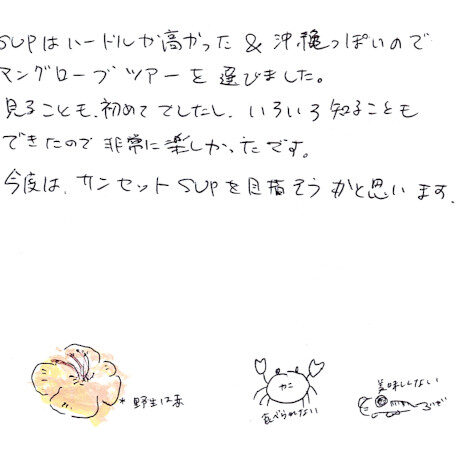 SUPはハードルが高かった & 沖縄っぽいので
マングローブツアーを選びました。
見ることも、初めてでしたし、いろいろ知ることも
できたので非常に楽しかったです。
今度は、サンセットSUPを目指そうかと思います。
* 野生は赤
カニ
食べられない
美味しくない